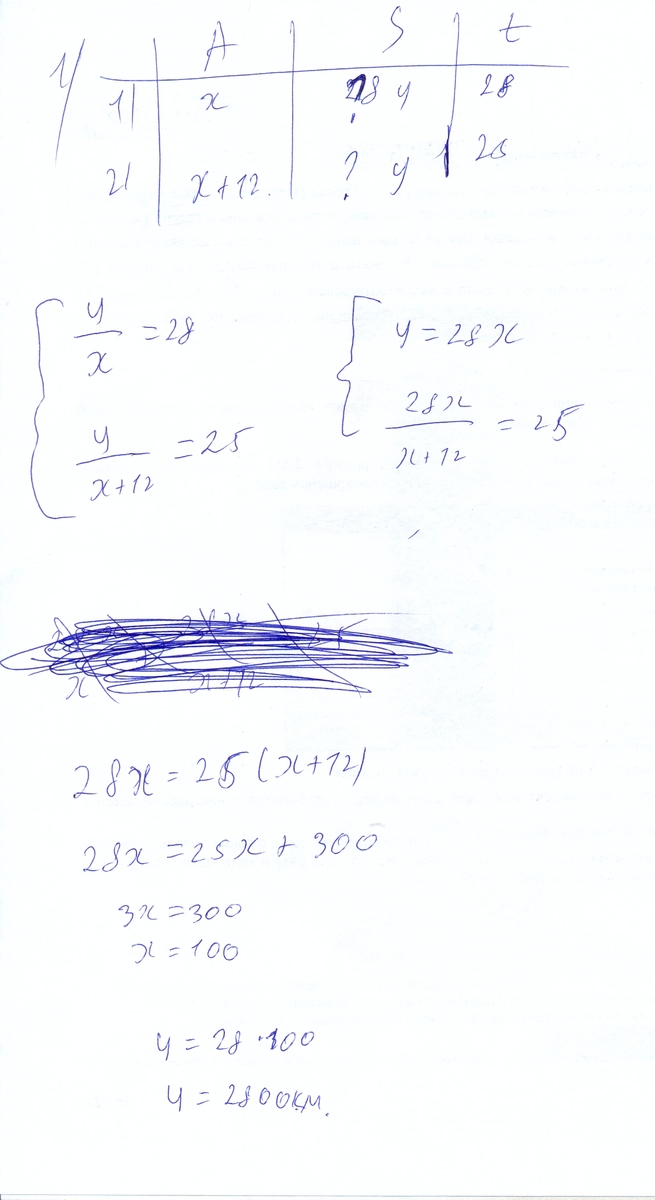 1/ A S t
1) x ? 28 y 28
2) x+12. ? y 25
y/x = 28 y = 28x
y/(x+12) = 25 28x/(x+12) = 25
28x = 25(x+12)
28x = 25x + 300
3x = 300
x = 100
y = 28 · 100
y = 2800км.